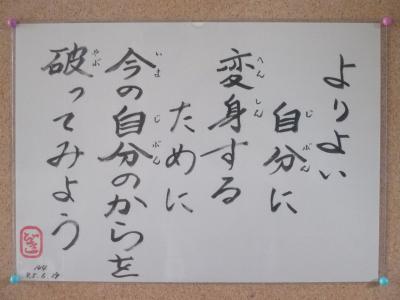 よりよい
自分に
変身する
ために
今の自分のからを
破ってみよう